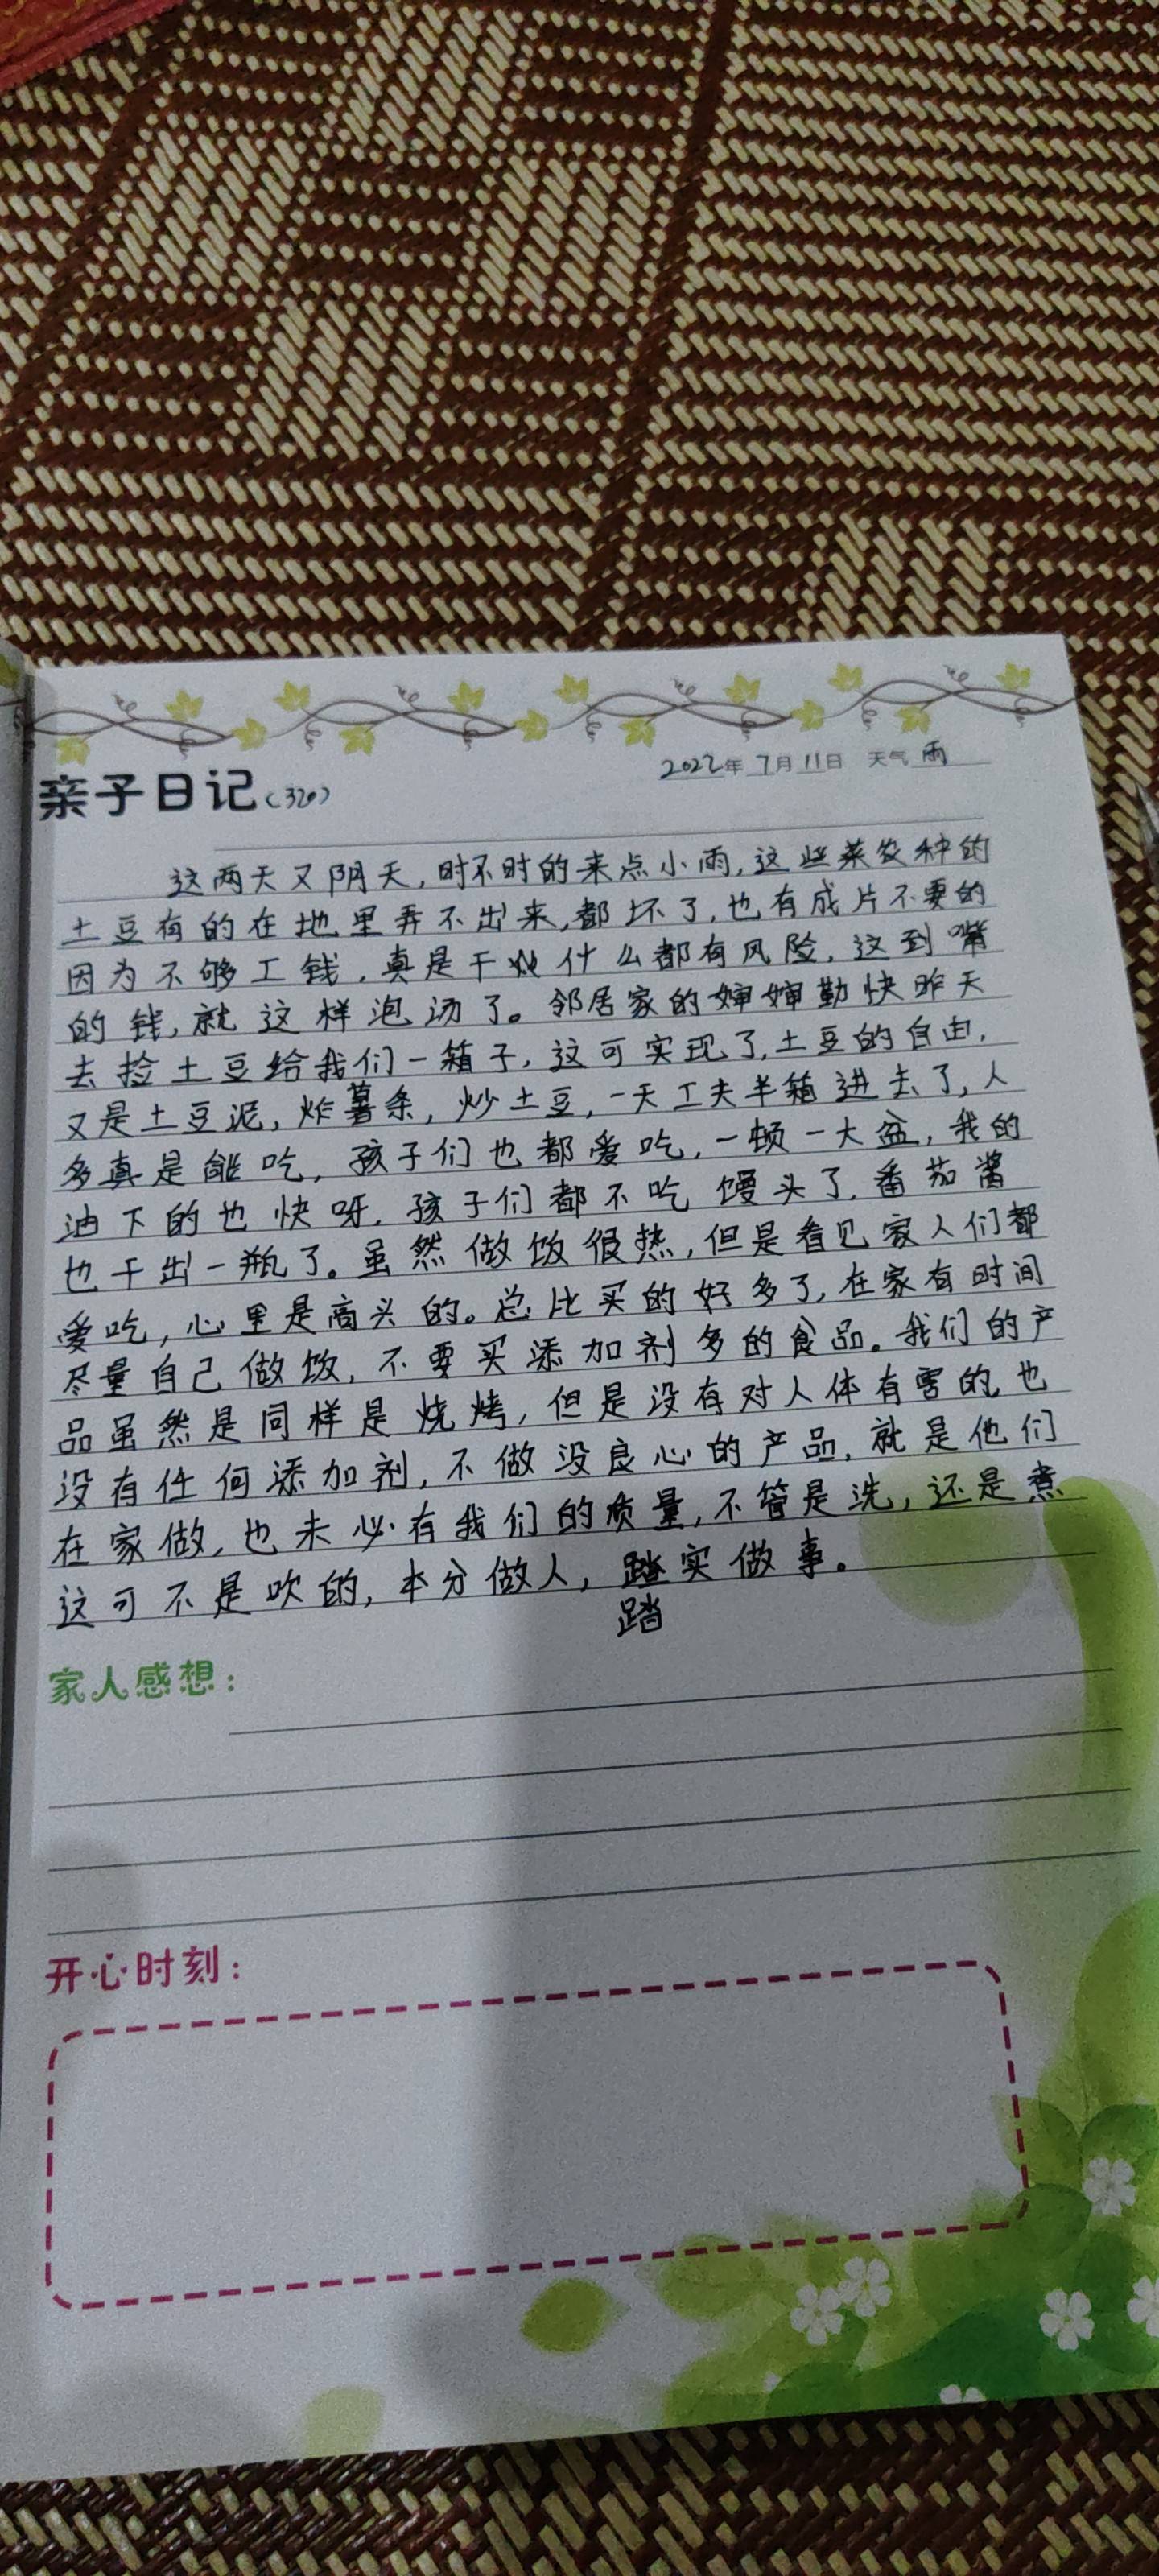 亲子日记(320) 2022年 7月 11日 天气 雨
这两天又阴天,时不时的来点小雨,这些菜农种的
土豆有的在地里弄不出来,都坏了,也有成片不要的
因为不够工钱,真是干什么都有风险,这到嘴
的钱,就这样泡汤了。邻居家的婶婶勤快昨天
去捡土豆给我们一箱子,这可实现了,土豆的自由,
又是土豆泥,炸薯条,炒土豆,一天工夫半箱进去了,人
多真是能吃,孩子们也都爱吃,一顿一大盆,我的
油下的也快呀,孩子们都不吃馒头了,番茄酱
也干出一瓶了。虽然做饭很热,但是看见家人们都
爱吃,心里是高兴的。总比买的好多了,在家有时间
尽量自己做饭,不要买添加剂多的食品。我们的产
品虽然是同样是烧烤,但是没有对人体有害的,也
没有任何添加剂,不做没良心的产品,就是他们
在家做,也未必有我们的质量,不管是洗,还是煮
这可不是吹的,本分做人,踏实做事。
踏
家人感想:
开心时刻: